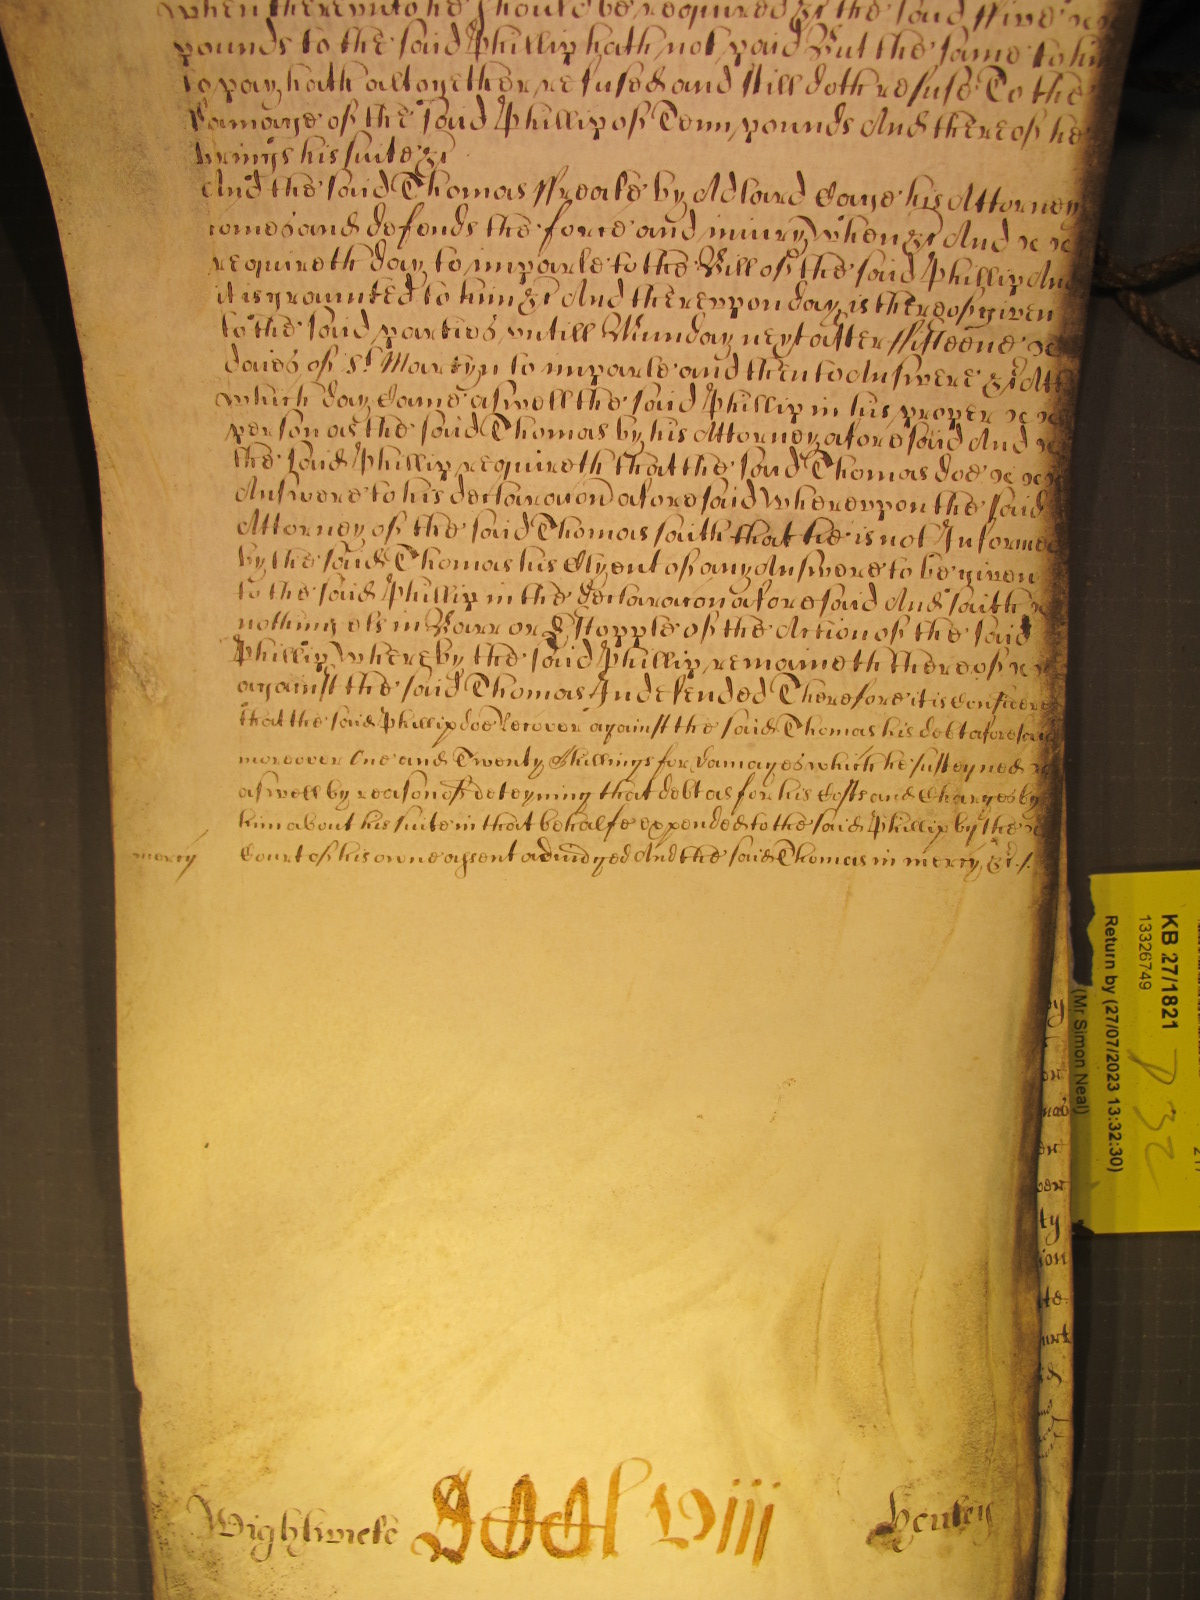 when therevnto he should be required &c the said ffive
pounds to the said Phillip hath not paid But the same to him
to pay hath altogether refused and still doth refuse To the
damage of the said Phillip of Tenn pounds And thereof he
brings his suite &c
And the said Thomas ffreake by Adlard Cage his Attorney
comes and defends the force and iniury when &c And
requireth day to imparle to the Bill of the said Phillip And
it is graunted to him &c And therevpon day is thereof given
to the said parties vntill Munday next after ffifteene
daies of St Martyn to imparle and then to Answere &c Att
which day Came aswell the said Phillip in his proper
person as the said Thomas by his Attorney aforesaid And
the said Phillip requireth that the said Thomas doe
Answere to his declaracon aforesaid Wherevpon the said
Attorney of the said Thomas saith that he is not Informed
by the said Thomas his Clyent of any Answere to be given
to the said Phillip in the declaracon aforesaid And saith
nothing els in Barr or Estopple of the Action of the said
Phillip Whereby the said Phillip remaineth thereof
against the said Thomas Indefended Therefore it is Considered
that the said Phillip doe Recover against the said Thomas his debt aforesaid
moreover One and Twenty Shillings for damages which he susteyned
aswell by reason of deteyning that debt as for his Costs and Charges by
him about his suite in that behalfe expended to the said Phillip by the
mercy Court of his owne assent adiudged And the said Thomas in mercy &c ./.
Wightwicke viii Henley
KB 27/1821
13326749
Return by (27/07/2023 13:32:30)
(Mr Simon Neal)